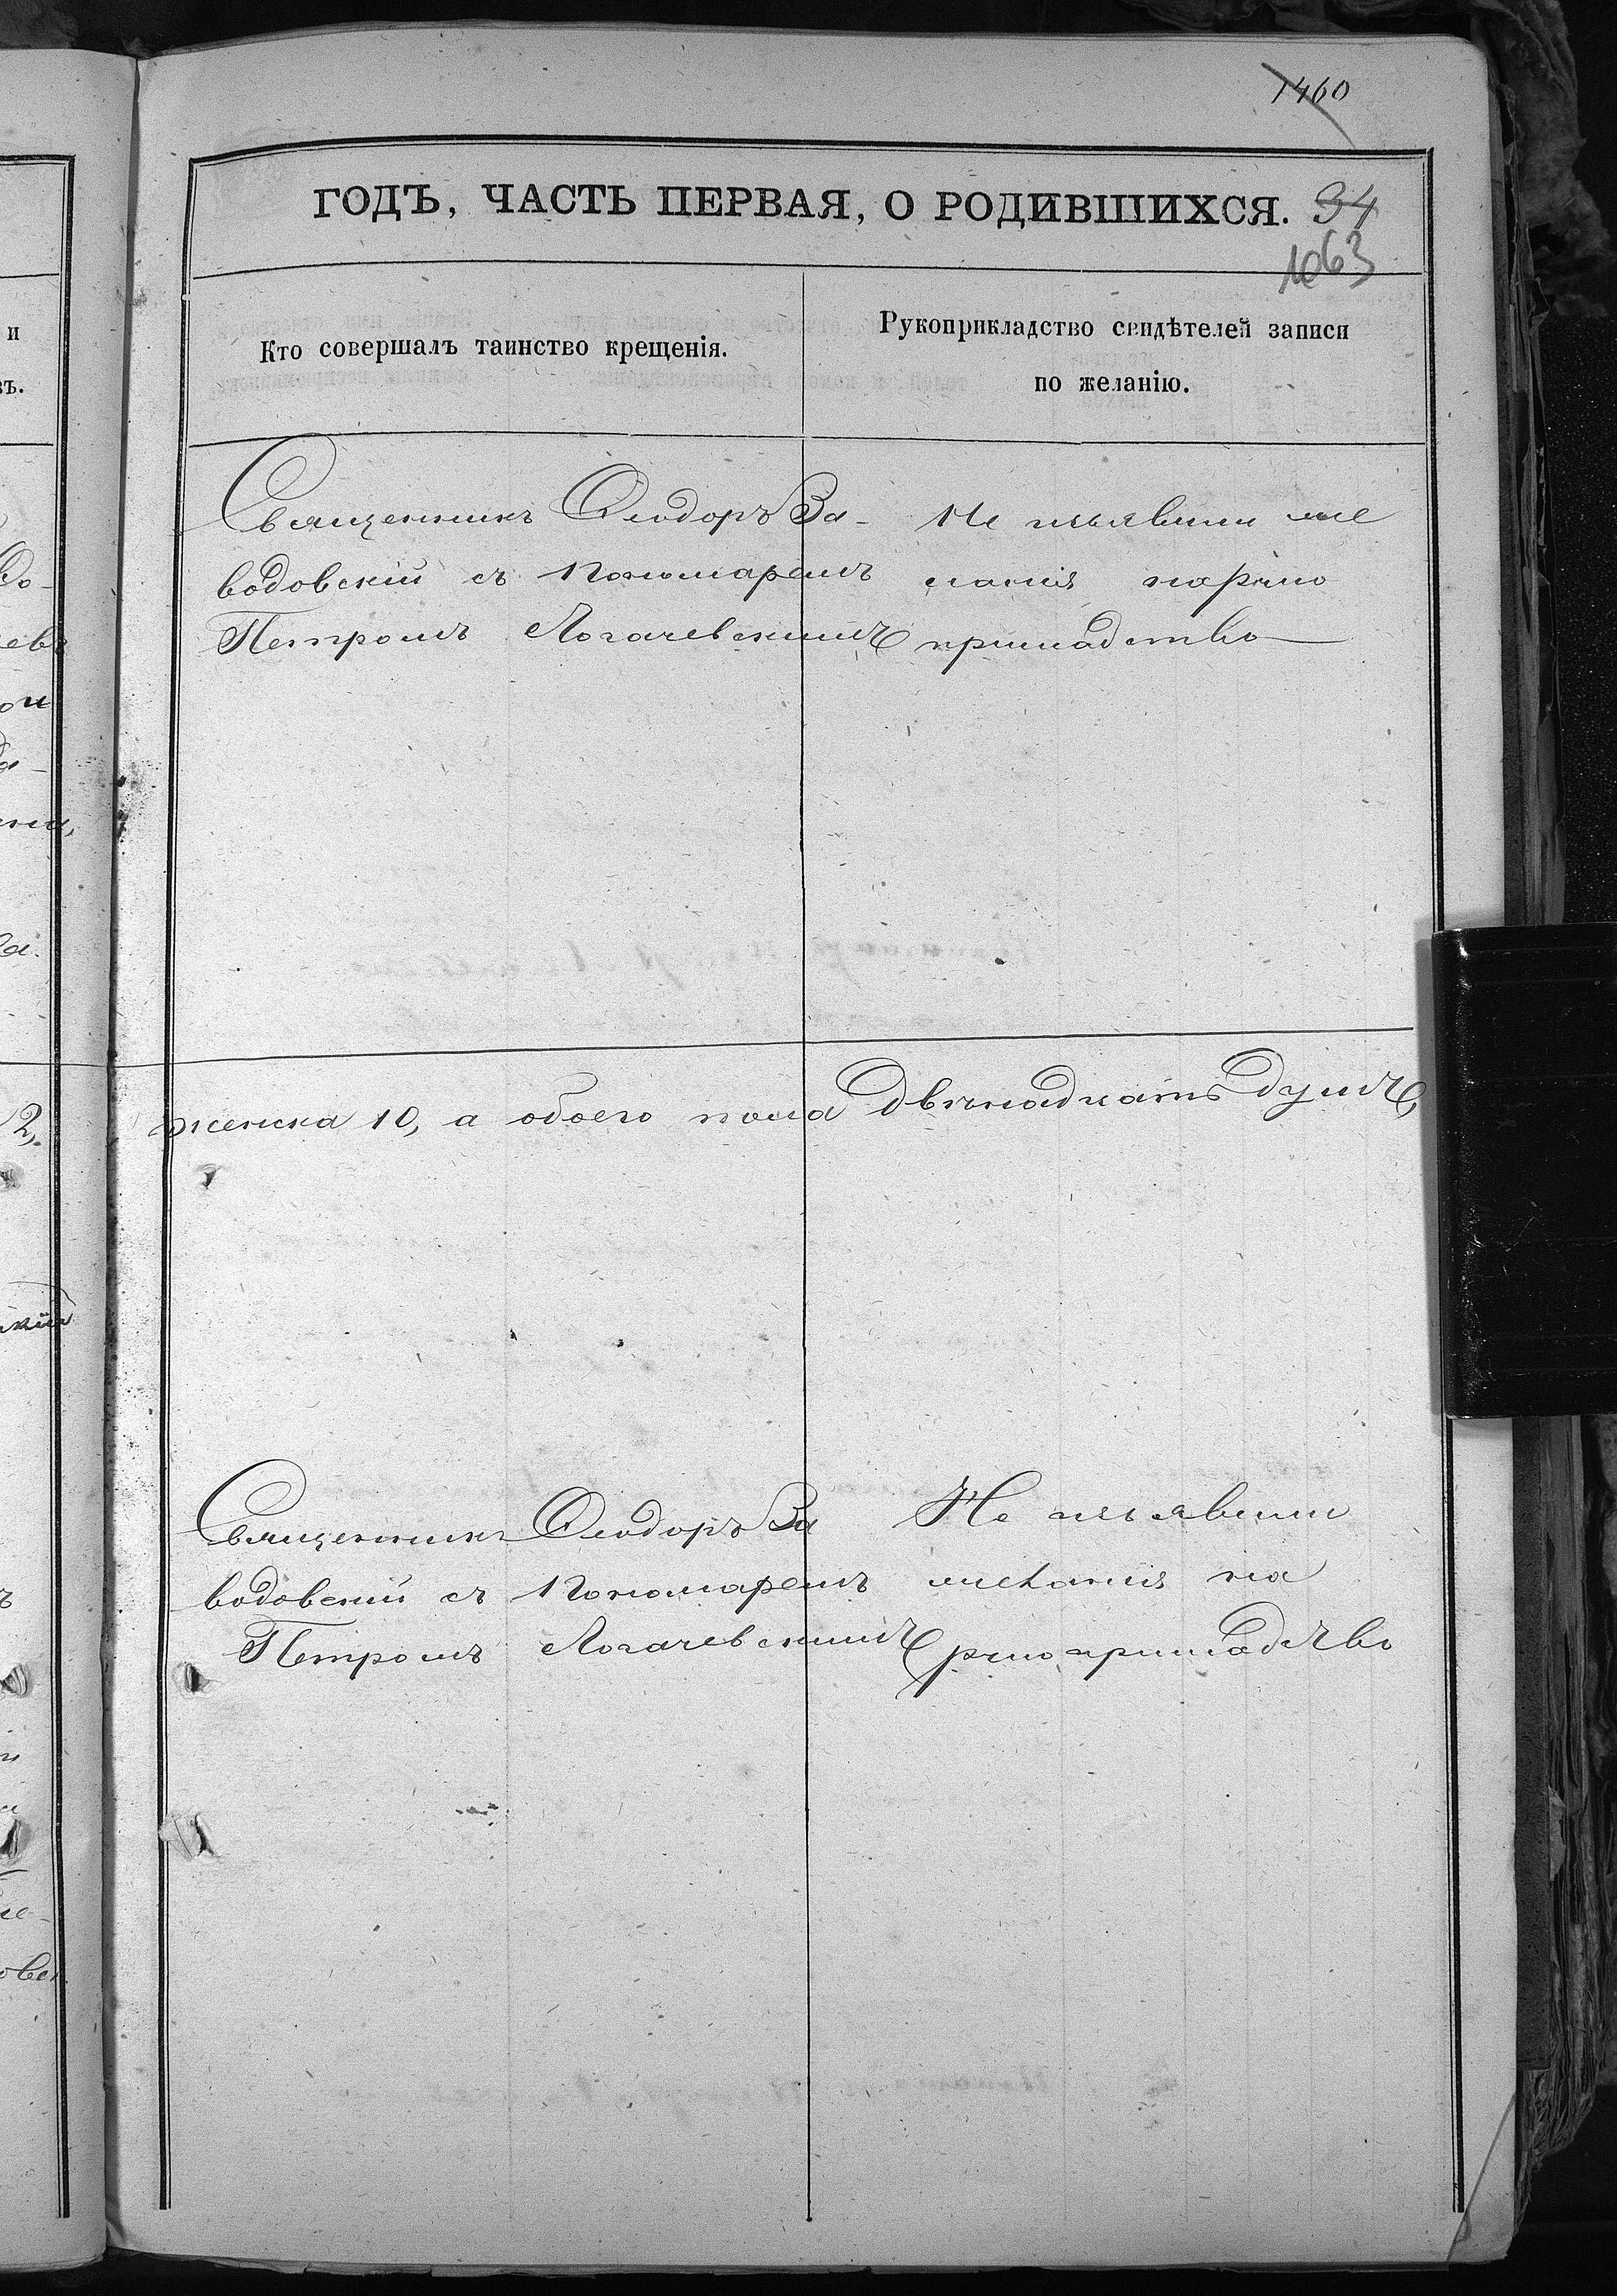 1460
ГОДЪ, ЧАСТЬ ПЕРВАЯ, О РОДИВШИХСЯ. 94
1063
и
въ.
Кто совершалъ таинство крещенія.
Рукоприкладство свидѣтелей записи
по желанію.
Священникъ Ѳеодоръ За-
водовскій съ Пономаремъ
Петромъ Логачевскимъ
Не изъявили же
ланія
2,
женска 10, а обоего пола Двѣнадцать душъ,
Священникъ Ѳеодоръ За
водовскій съ Пономаремъ
Петромъ Логачевскимъ
Не изъявили
желанія на